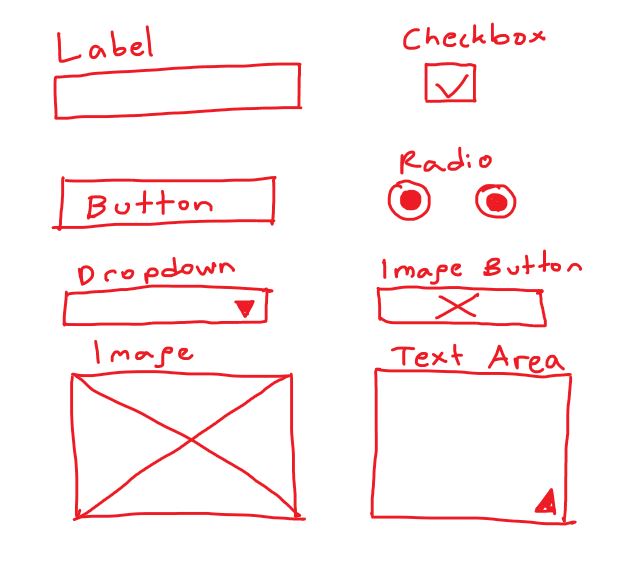 Label
Checkbox
Button
Radio
Dropdown
Image Button
Image
Text Area